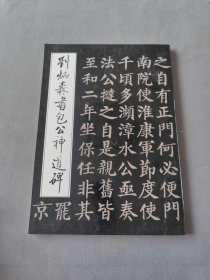 之自有正門何必便門
南院使淮康軍節度使
千頃多瀕漳水公亟奏
法公撻之自是親舊皆
至和二年坐保任非其
劉炳森書包公神道碑
罷
京